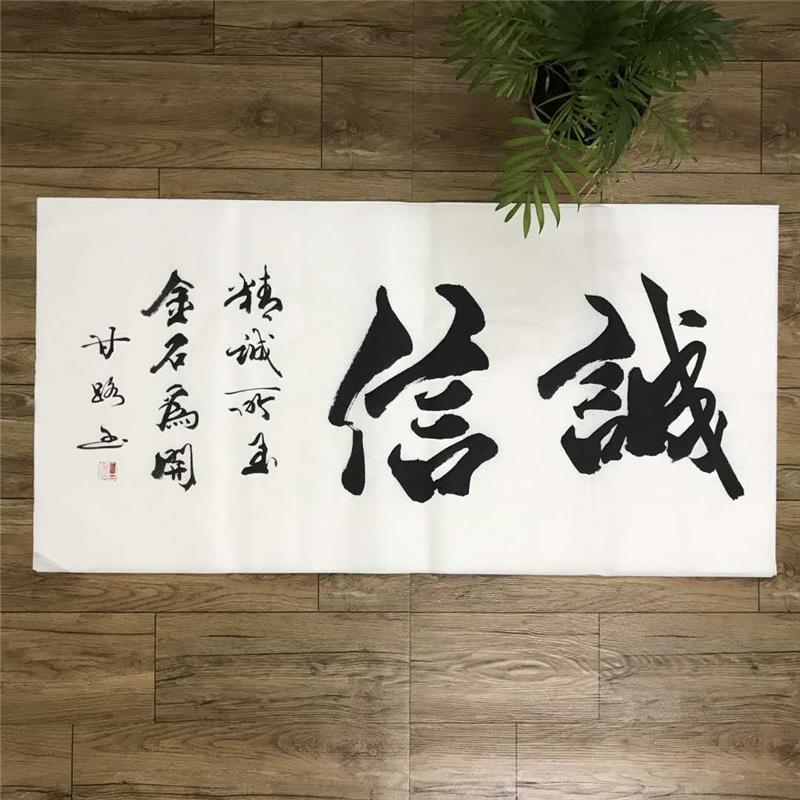 誠信
精誠所至
金石為開
甘路书